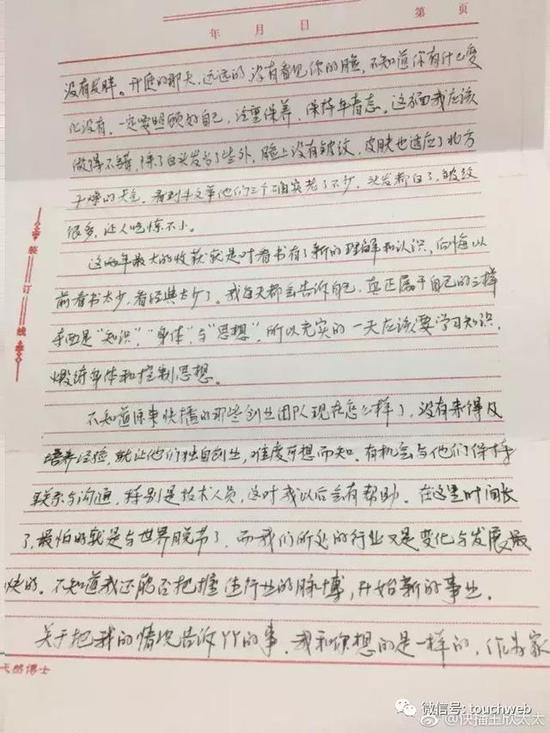 年 月 日 第 页
没有发胖。开庭的那天,远远的没有看见你的脸,不知道你有什么变
化没有,一定要照顾好自己,注重保养,保持年青态。这方面我应该
做得不错,除了白头发多了些外,脸上没有皱纹,皮肤也适应了北方
干燥的天气。看到 他们三个确实老了不少,头发都白了,皱纹
很多,让人吃惊不小。
这两年最大的收获就是对看书有了新的理解和认识,后悔以
前看书太少,看经典太少了。我每天都会告诉自己,真正属于自己的三样
东西是“知识”,“身体”与“思想”,所以充实的一天应该要学习知识,
煅练身体和控制思想。
不知道原来快播的那些创业团队现在怎么样了,没有来得及
培养经验,就让他们独自创业,难度可想而知。有机会与他们保持
联系与沟通,特别是技术人员,这对我以后会有帮助。在这里时间长
了,最怕的就是与世界脱节了,而我们所处的行业又是变化与发展最
快的。不知道我还能否把握住行业的脉搏,开始新的事业。
关于把我的情况告诉YY的事,我和你想的是一样的,作为家
装订线
天然博士
微信号: touchweb
@快播王欣太太